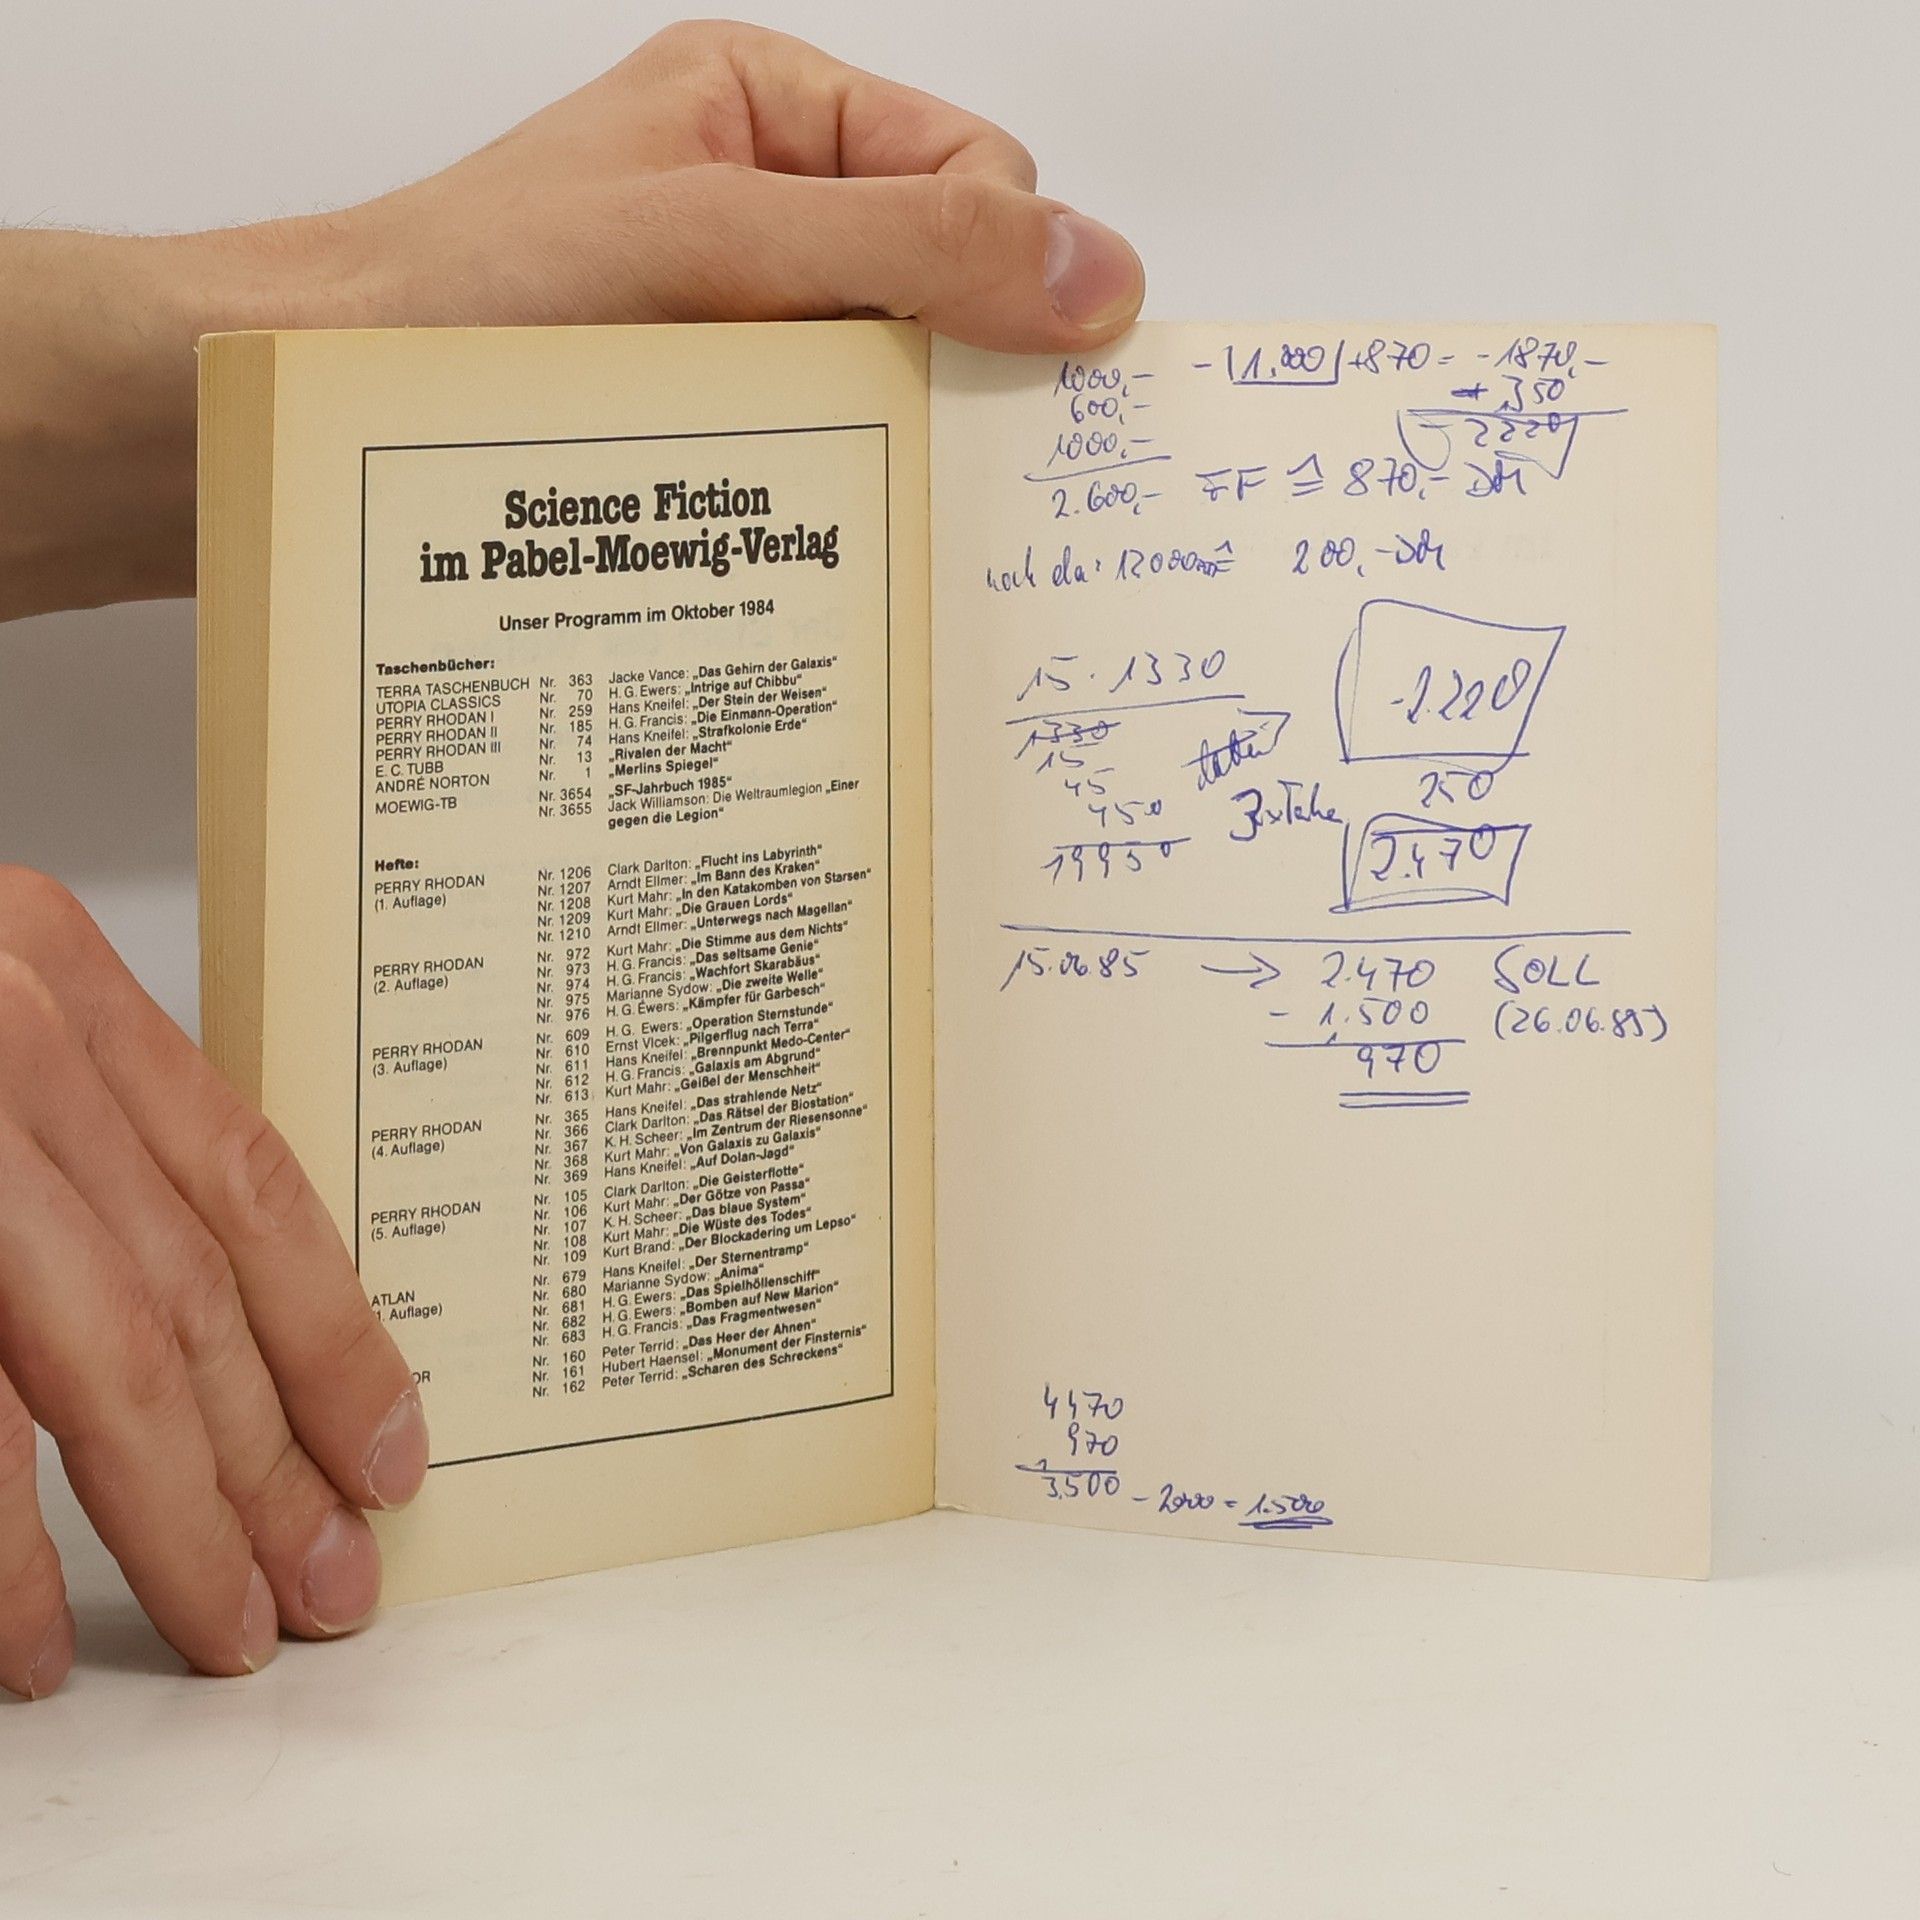 Science Fiction
im Pabel-Moewig-Verlag
Unser Programm im Oktober 1984
Taschenbücher:
TERRA TASCHENBUCH Nr. 363 Jacke Vance: „Das Gehirn der Galaxis“
UTOPIA CLASSICS Nr. 70 H. G. Ewers: „Intrige auf Chibbu“
PERRY RHODAN I Nr. 259 Hans Kneifel: „Der Stein der Weisen“
PERRY RHODAN II Nr. 185 H. G. Francis: „Die Einmann-Operation“
PERRY RHODAN III Nr. 74 Hans Kneifel: „Strafkolonie Erde“
E. C. TUBB Nr. 13 „Rivalen der Macht“
ANDRÉ NORTON Nr. 1 „Merlins Spiegel“
MOEWIG-TB Nr. 3654 „SF-Jahrbuch 1985“
Nr. 3655 Jack Williamson: Die Weltraumlegion „Einer
gegen die Legion“
Hefte:
PERRY RHODAN Nr. 1206 Clark Darlton: „Flucht ins Labyrinth“
(1. Auflage) Nr. 1207 Arndt Ellmer: „Im Bann des Kraken“
Nr. 1208 Kurt Mahr: „In den Katakomben von Starsen“
Nr. 1209 Kurt Mahr: „Die Grauen Lords“
Nr. 1210 Arndt Ellmer: „Unterwegs nach Magellan“
PERRY RHODAN Nr. 972 Kurt Mahr: „Die Stimme aus dem Nichts“
(2. Auflage) Nr. 973 H. G. Francis: „Das seltsame Genie“
Nr. 974 H. G. Francis: „Wachfort Skarabäus“
Nr. 975 Marianne Sydow: „Die zweite Welle“
Nr. 976 H. G. Ewers: „Kämpfer für Garbesch“
PERRY RHODAN Nr. 609 H. G. Ewers: „Operation Sternstunde“
(3. Auflage) Nr. 610 Ernst Vlcek: „Pilgerflug nach Terra“
Nr. 611 Hans Kneifel: „Brennpunkt Medo-Center“
Nr. 612 H. G. Francis: „Galaxis am Abgrund“
Nr. 613 Kurt Mahr: „Geißel der Menschheit“
PERRY RHODAN Nr. 365 Hans Kneifel: „Das strahlende Netz“
(4. Auflage) Nr. 366 Clark Darlton: „Das Rätsel der Biostation“
Nr. 367 K. H. Scheer: „Im Zentrum der Riesensonne“
Nr. 368 Kurt Mahr: „Von Galaxis zu Galaxis“
Nr. 369 Hans Kneifel: „Auf Dolan-Jagd“
PERRY RHODAN Nr. 105 Clark Darlton: „Die Geisterflotte“
(5. Auflage) Nr. 106 Kurt Mahr: „Der Götze von Passa“
Nr. 107 K. H. Scheer: „Das blaue System“
Nr. 108 Kurt Mahr: „Die Wüste des Todes“
Nr. 109 Kurt Brand: „Der Blockadering um Lepso“
ATLAN Nr. 679 Hans Kneifel: „Der Sternentramp“
1. Auflage) Nr. 680 Marianne Sydow: „Anima“
Nr. 681 H. G. Ewers: „Das Spielhöllenschiff“
Nr. 682 H. G. Ewers: „Bomben auf New Marion“
Nr. 683 H. G. Francis: „Das Fragmentwesen“
OR Nr. 160 Peter Terrid: „Das Heer der Ahnen“
Nr. 161 Hubert Haensel: „Monument der Finsternis“
Nr. 162 Peter Terrid: „Scharen des Schreckens“
1000,- - 1.000 +870 = -1870,-
600,- 350
1000,- - 2220
2.600,- FF ≙ 870,- DM
noch da: ≙ 200,- DM
15 · 1330
1330 -2.220
15
45 250
450
19950 2.470
15.06.85 → 2.470 SOLL
- 1.500 (26.06.85)
970
4470
970
3.500 - 2000 = 1.500